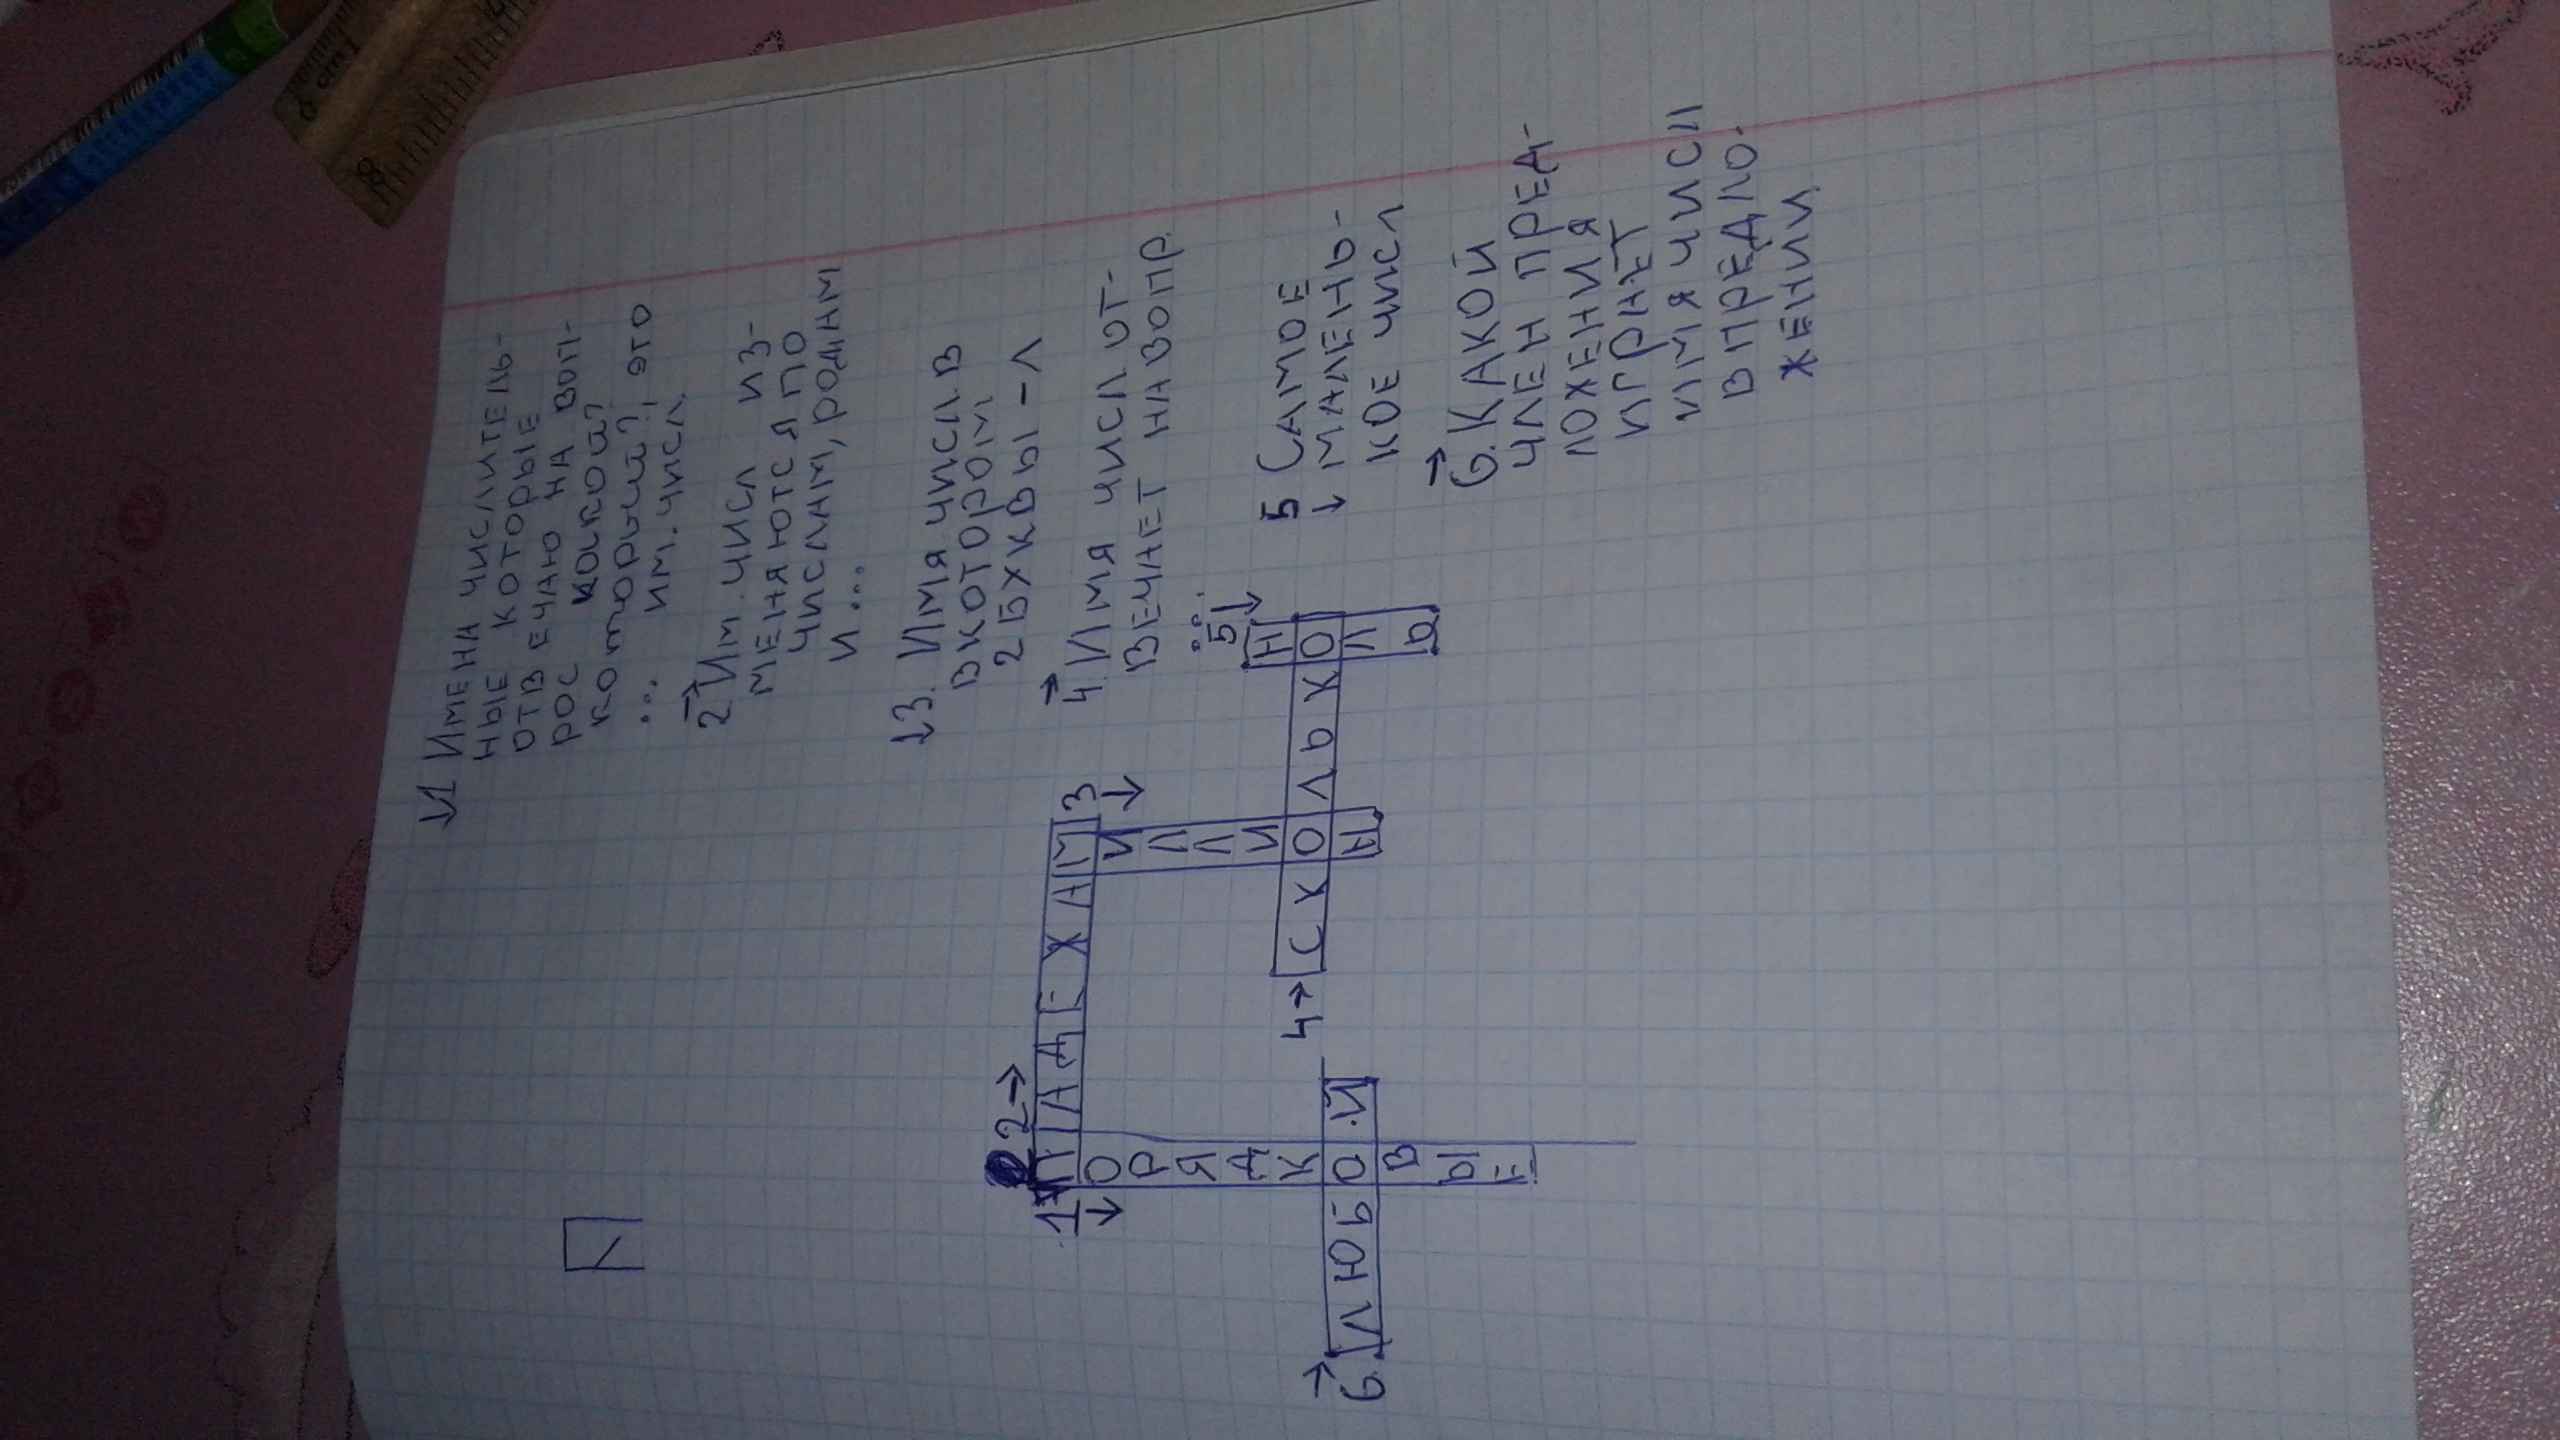 ↓1 ИМЕНА ЧИСЛИТЕЛЬ-
НЫЕ КОТОРЫЕ
ОТВЕЧАЮ НА ВОП-
РОС какой?
который?, ЭТО
... ИМ. ЧИСЛ.
2→ ИМ. ЧИСЛ ИЗ-
МЕНЯЮТСЯ ПО
ЧИСЛАМ, РОДАМ
И...
↓3. ИМЯ ЧИСЛ В
ВКОТОРОМ
2 БУКВЫ - Л
→4. ИМЯ ЧИСЛ ОТ-
ВЕЧАЕТ НА ВОПР
...
5 САМОЕ
↓ МАЛЕНЬ-
КОЕ ЧИСЛ
→6. КАКОЙ
ЧЛЕН ПРЕД-
ЛОЖЕНИЯ
ИГРАЕТ
ИМЯ ЧИСЛ
В ПРЕДЛО.
ЖЕНИИ
2→
1 ПАДЕЖАМ 3
↓ ↓
ПОРЯДКОВЫЕ
МИЛЛИОН
4→ СКОЛЬКО
5↓
НОЛЬ
→6. ЛЮБОЙ
8
6 cm